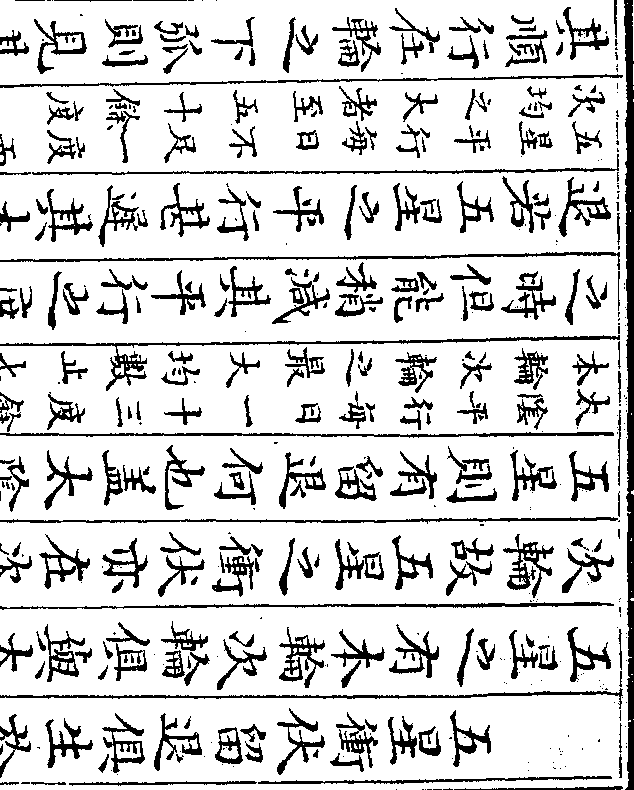 五星衝伏留退俱生於
五星之有本輪次輪俱與太
次輪故五星之衝伏亦在次
五星則有留退何也蓋太陰
太陰平行每日一十三度餘
本輪次輪之最大均數止七
之時但能稍減其平行之度
退若五星之平行甚遲其
五星平行每日不足一度而
次均之大者至五十餘度
其順行在輪之下弧則見其